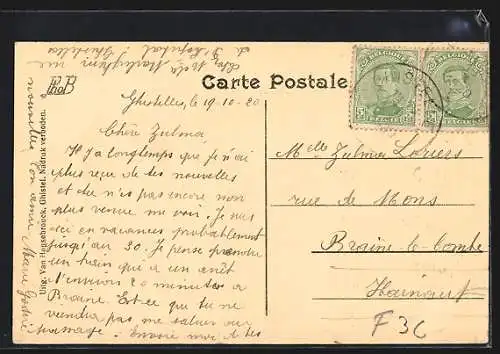 Carte Postale
Ghistelles, 19-10-20
Chère Zulma,
Il y a longtemps que je n'ai
plus reçu de tes nouvelles
et tu n'es pas encore non
plus venue me voir. Je suis
ici en vacances probablement
jusqu'au 30. Je pense prendre
un train qui a un arrêt
d'environ 20 minutes à
Braine. Est-ce que tu ne
viendra pas me saluer au
passage? Envoie moi de tes
nouvelles ton amie Marie
Melle Zulma
rue de Mons
Braine-le-Comte
Hainaut
F 3C
Uitg. Van Hegsebouck, Ghistel. Nadruk verboden.
BELGIË
BELGIË